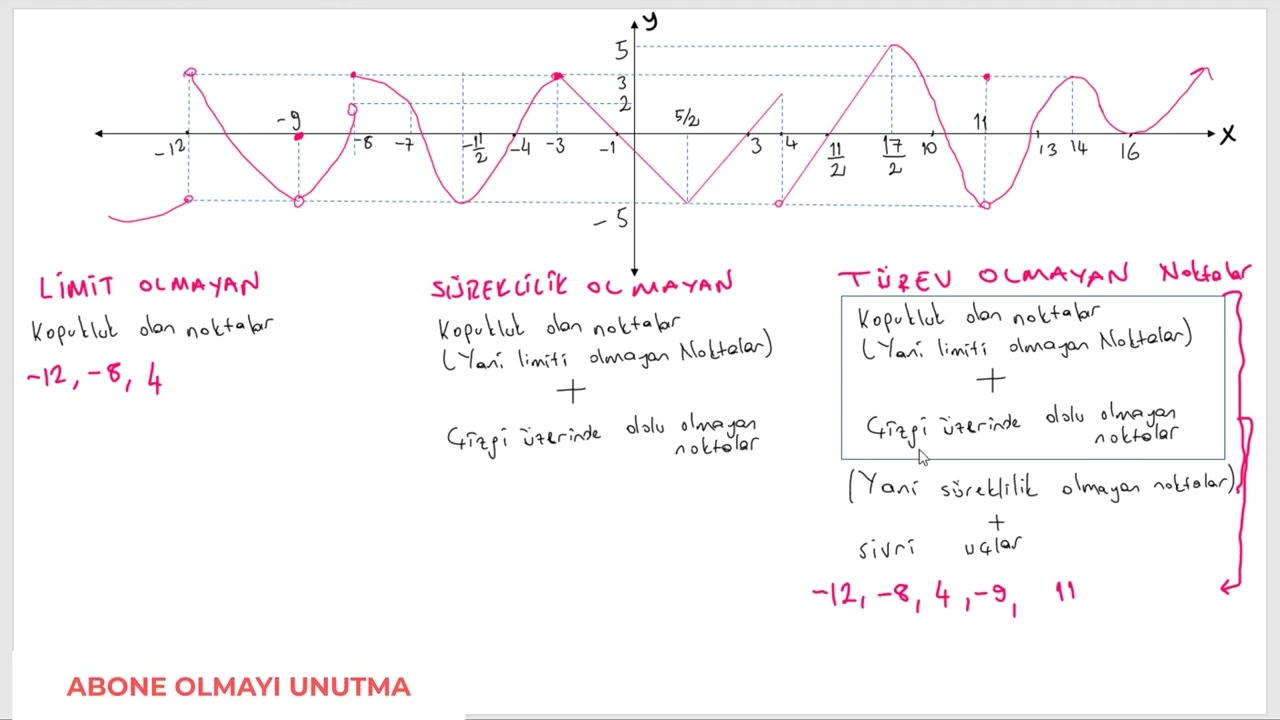 y
5
3
2
-5
x
-12
-9
-8
-7
-11/2
-4
-3
-1
5/2
3
4
11/2
17/2
10
11
13
14
16
LİMİT OLMAYAN
Kopukluk olan noktalar
-12, -8, 4
SÜREKLİLİK OLMAYAN
Kopukluk olan noktalar
(Yani limiti olmayan Noktalar)
+
Çizgi üzerinde dolu olmayan
noktalar
TÜREV OLMAYAN Noktalar
Kopukluk olan noktalar
(Yani limiti olmayan Noktalar)
+
Çizgi üzerinde dolu olmayan
noktalar
(Yani süreklilik olmayan noktalar)
+
sivri uçlar
-12, -8, 4, -9, 11
ABONE OLMAYI UNUTMA